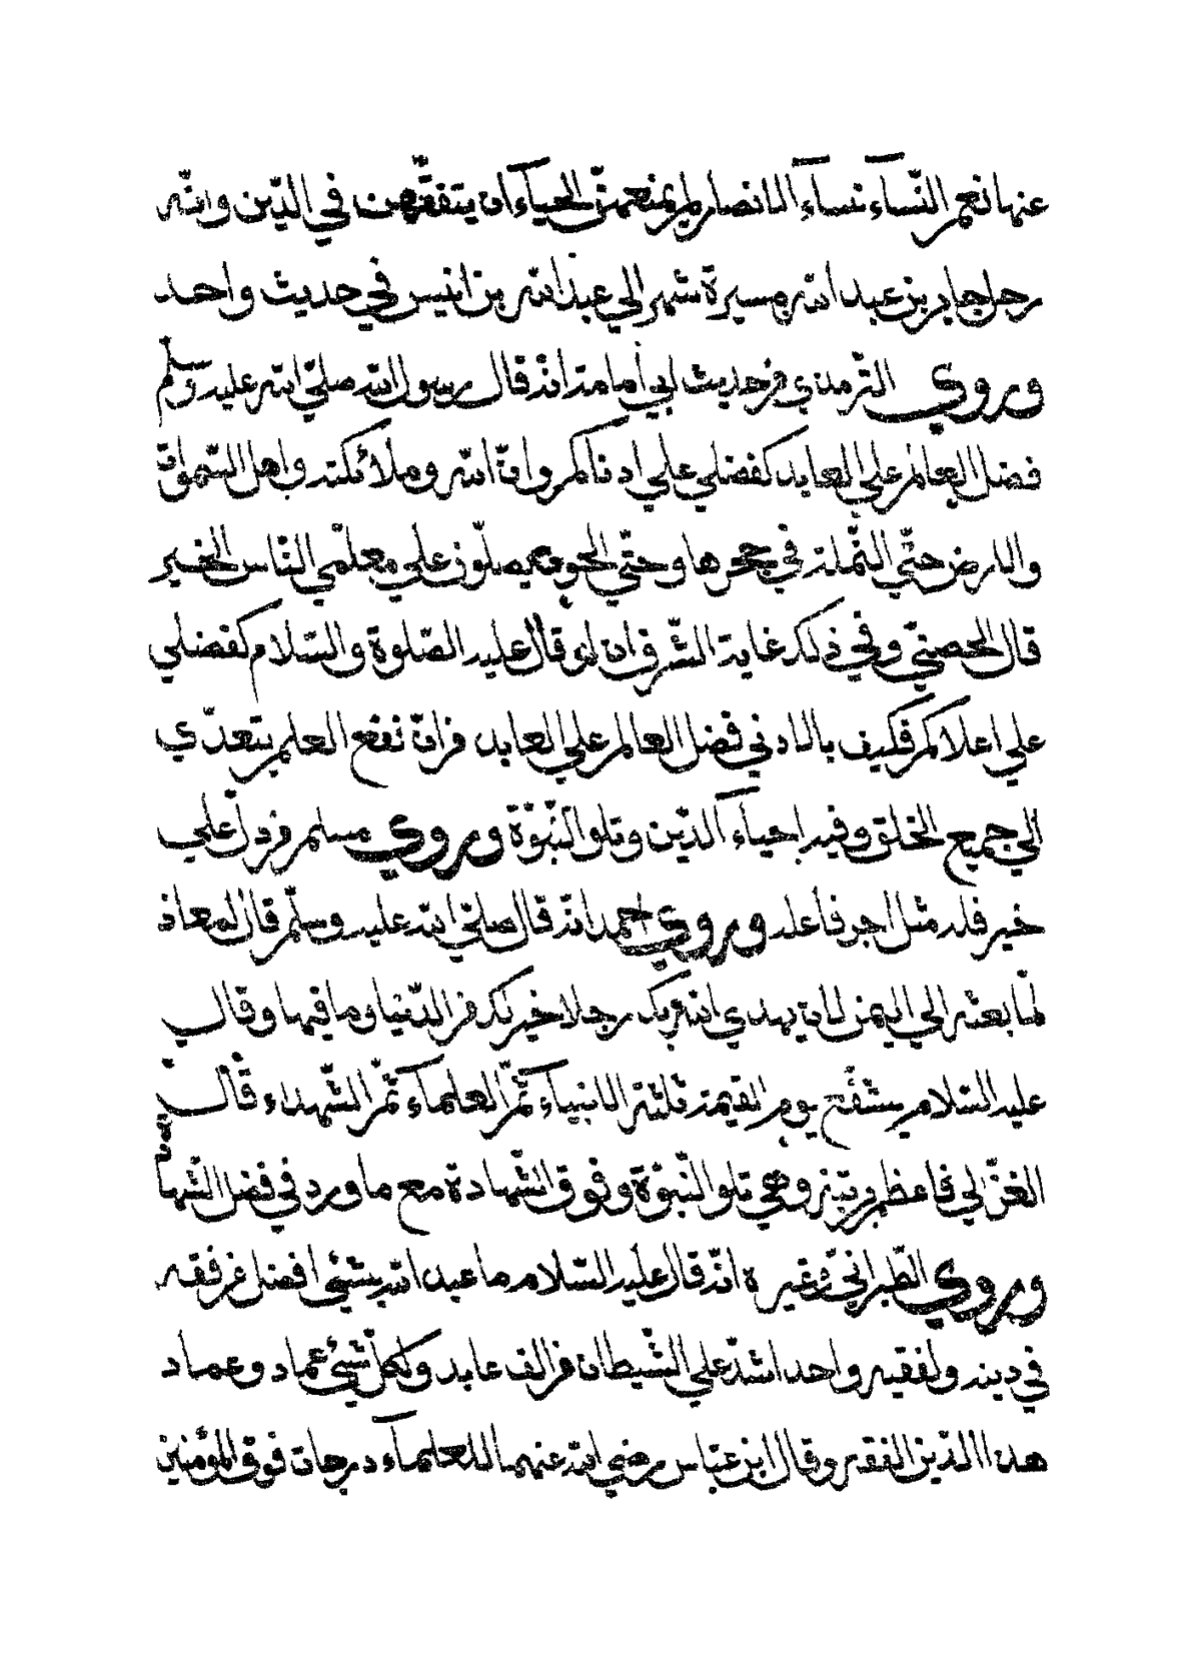 عنها نعم النّساء نساء الانصار لم يمنعهنّ الحياء ان يتفقّهن في الدّين وانّه
رحل جابر بن عبد الله مسيرة شهر الي عبد الله بن انيس في حديث واحد
وروي الترمذي من حديث ابي امامة انه قال رسول الله صلّي الله عليه وسلم
فضل العالم علي العابد كفضلي علي ادناكم وان الله وملائكته واهل السّموات
والارض حتّي النّملة في جحرها وحتّي الحوت يصلّون علي معلّمي النّاس الخير
قال الحصني وفي ذلك غاية الشّرف ان لو قال عليه الصّلوة والسّلام كفضلي
علي اعلاكم فكيف بالادني فضل العالم علي العابد من انّ نفع العلم يتعدّي
الي جميع الخلق وفيه احياء الدّين وتلو النّبوّة وروي مسلم من دلّ علي
خير فله مثل اجر فاعله وروي احمد انّه قال صلّي الله عليه وسلّم قال لمعاذ
لمّا بعثه الي اليمن لان يهدي الله بك رجلا خير لك من الدّنيا وما فيها وقال
عليه السّلام يشفع يوم القيمة ثلثة الانبياء ثمّ العلماء ثمّ الشّهداء قال
الغزّالي فاعظم مرتبة وهي تلو النّبوّة وفوق الشّهادة مع ما ورد في فضل الشّهادة
وروي الطّبراني وغيره انّه قال عليه السّلام ما عبد الله بشئ افضل من فقه
في دينه ولفقيه واحد اشدّ علي الشّيطان من الف عابد ولكلّ شئ عماد وعماد
هذا الدّين الفقه وقال ابن عبّاس رضي الله عنهما للعلماء درجات فوق المؤمنين